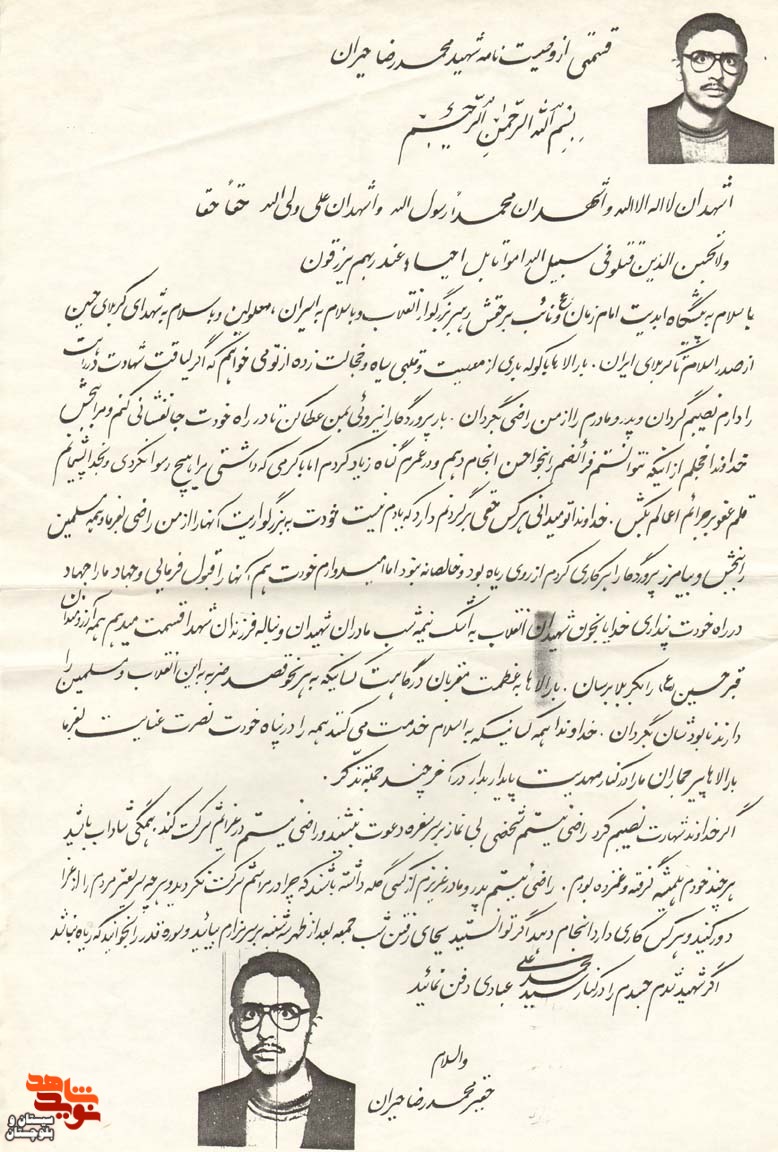 قسمتی از وصیت نامه شهید محمد رضا حیران
بِسْمِ اللهِ الرَّحْمٰنِ الرَّحیٖمْ
اشهدان لااله الاالله واشهدان محمداً رسول الله واشهدان علی ولی الله حقاً حقا
ولاتحسبن الذین قتلو فی سبیل الله امواتا بل احیاء عند ربهم یرزقون
با سلام به پیشگاه ابدیت امام زمان (عج) و نائب برحقش رهبر بزرگوار انقلاب و با سلام به اسیران ، معلولین و با سلام به شهدای کربلای حسین
از صدر اسلام تا کربلای ایران . بارالاها با کوله باری از معصیت و قلبی سیاه و خجالت زده از تو می خواهم که اگر لیاقت شهادت در راهت
را دارم نصیبم گردان و پدر و مادرم را از من راضی بگردان . بار پروردگارا نیروئی بمن عطا کن تا در راه خودت جانفشانی کنم و مرا ببخش
خداوندا خجلم از اینکه نتوانستم فرائضم را بنحو احسن انجام دهم و در عمرم گناه زیاد کردم اما با کرمی که داشتی مرا هیچ رسوا نکردی و بخدا پشیمانم
قلم عفو بر جرائم اعمالم بکش . خداوندا تو میدانی هر کس حقی بر گردنم دارد که یادم نیست خودت به بزرگواریت آنها را از من راضی بفرما و همه مسلمین
را ببخش و بیامرز پروردگارا هر کاری کردم از روی ریاه بود و خالصانه نبود اما امیدوارم خودت هم آنها را قبول فرمایی و جهاد ما را جهاد
در راه خودت پنداری خدایا بخون شهیدان انقلاب به اشک نیمه شب مادران شهیدان و ناله فرزندان شهدا قسمت میدهم همه آرزومندان
قبر حسین (ع) را بکربلا برسان . بارالا ها به عظمت مقربان درگاهت کسانیکه به هر نحو قصد ضربه به این انقلاب و مسلمین را
دارند نابودشان بگردان . خداوندا همه کسانیکه به اسلام خدمت می کنند همه را در پناه خودت نصرت عنایت بفرما
بارالاها پیر جماران ما را در کنار مهدیت پایدار بدار در آخر چند جمله تذکر .
اگر خداوند شهادت نصیبم کرد راضی نیستم شخصی بی نماز بر سر سفره دعوت بنشیند و راضی نیستم در عزایم شرکت کند . همگی شاداب باشید
هر چند خودم همیشه گرفته و غمزده بودم . راضی نیستم پدر و مادر عزیزم از کسی گله داشته باشند که چرا در مراسم شرکت نکردید و هر چه سریعتر مردم را از عزا
دور کنید و هر کس کاری دارد انجام دهد اگر توانستید بجای رفتن شب جمعه بعد از ظهر شنبه بر سر مزارم بیائید و سوره قدر را بخوانید که ریاه نباشد
اگر شهید شدم جسدم را در کنار سید محمد علی عبادی دفن نمائید
والسلام
حقیر محمد رضا حیران
نوید شاهد
سیستان و
بلوچستان